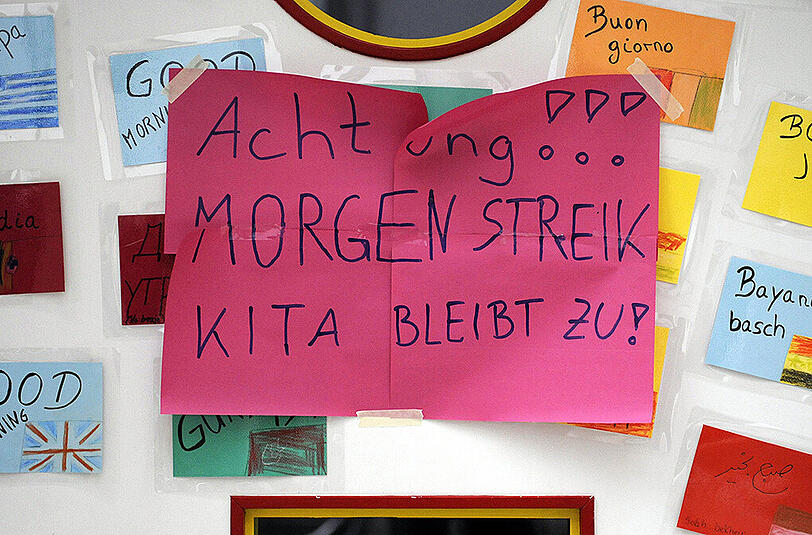 Achtung!!!
MORGEN STREIK
KITA BLEIBT ZU!
GOOD
MORNING
Buon
giorno
dia
Bayan
basch
OOD
NING
صبح بخیر